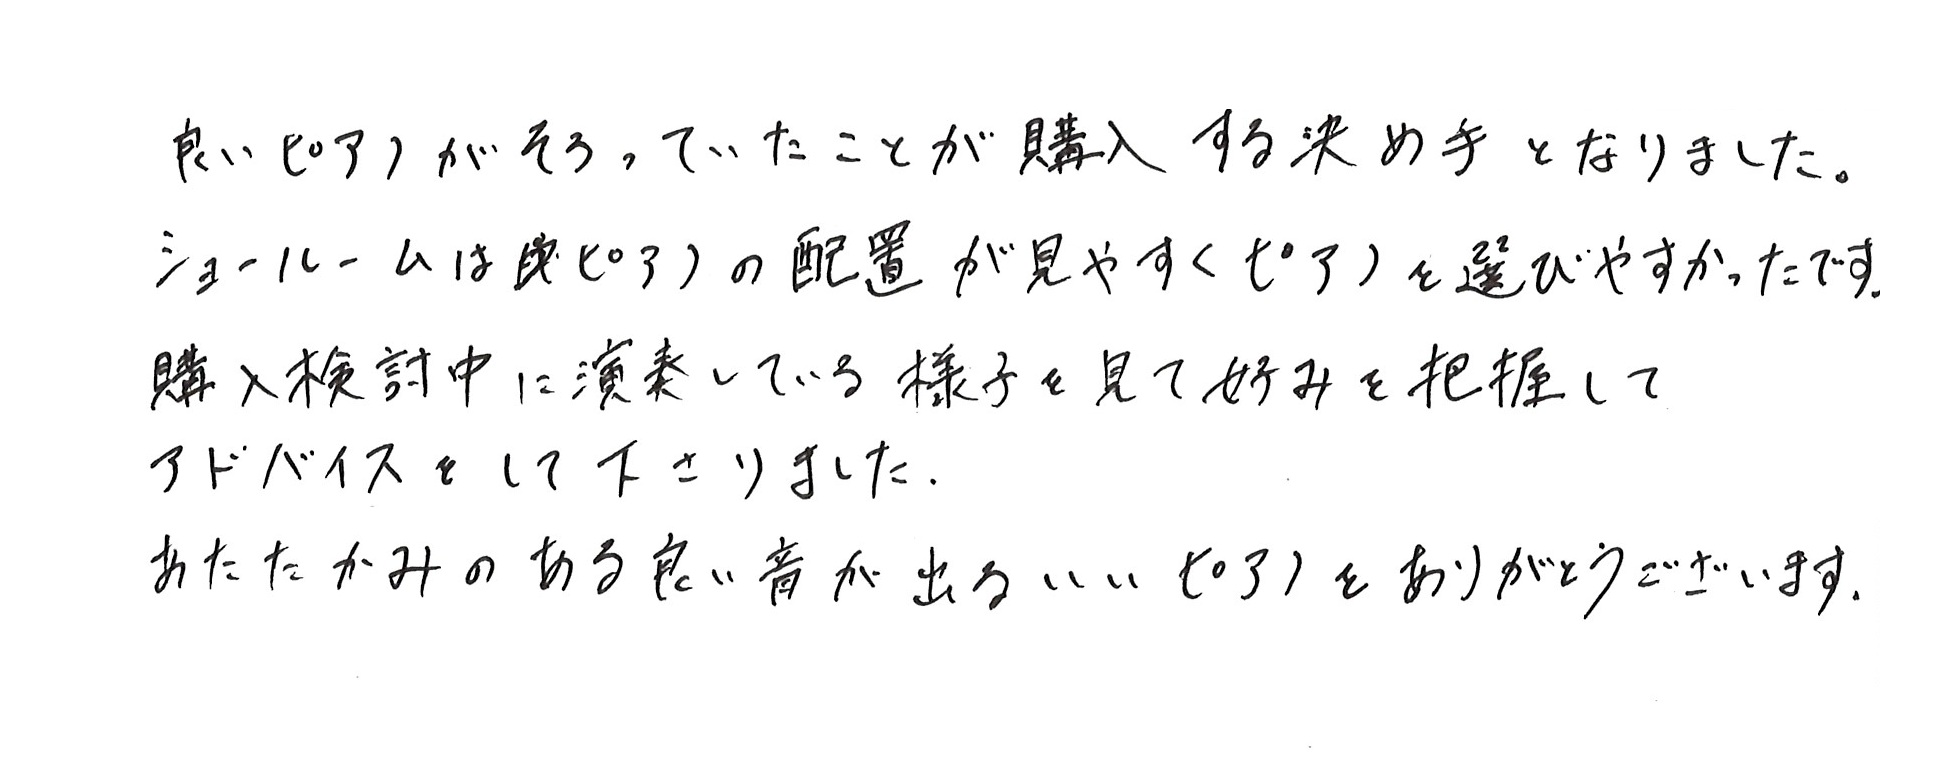 良いピアノがそろっていたことが購入する決め手となりました。
ショールームはピアノの配置が見やすくピアノを選びやすかったです.
購入検討中に演奏している様子を見て好みを把握して
アドバイスをして下さりました.
あたたかみのある良い音が出るいいピアノをありがとうございます.